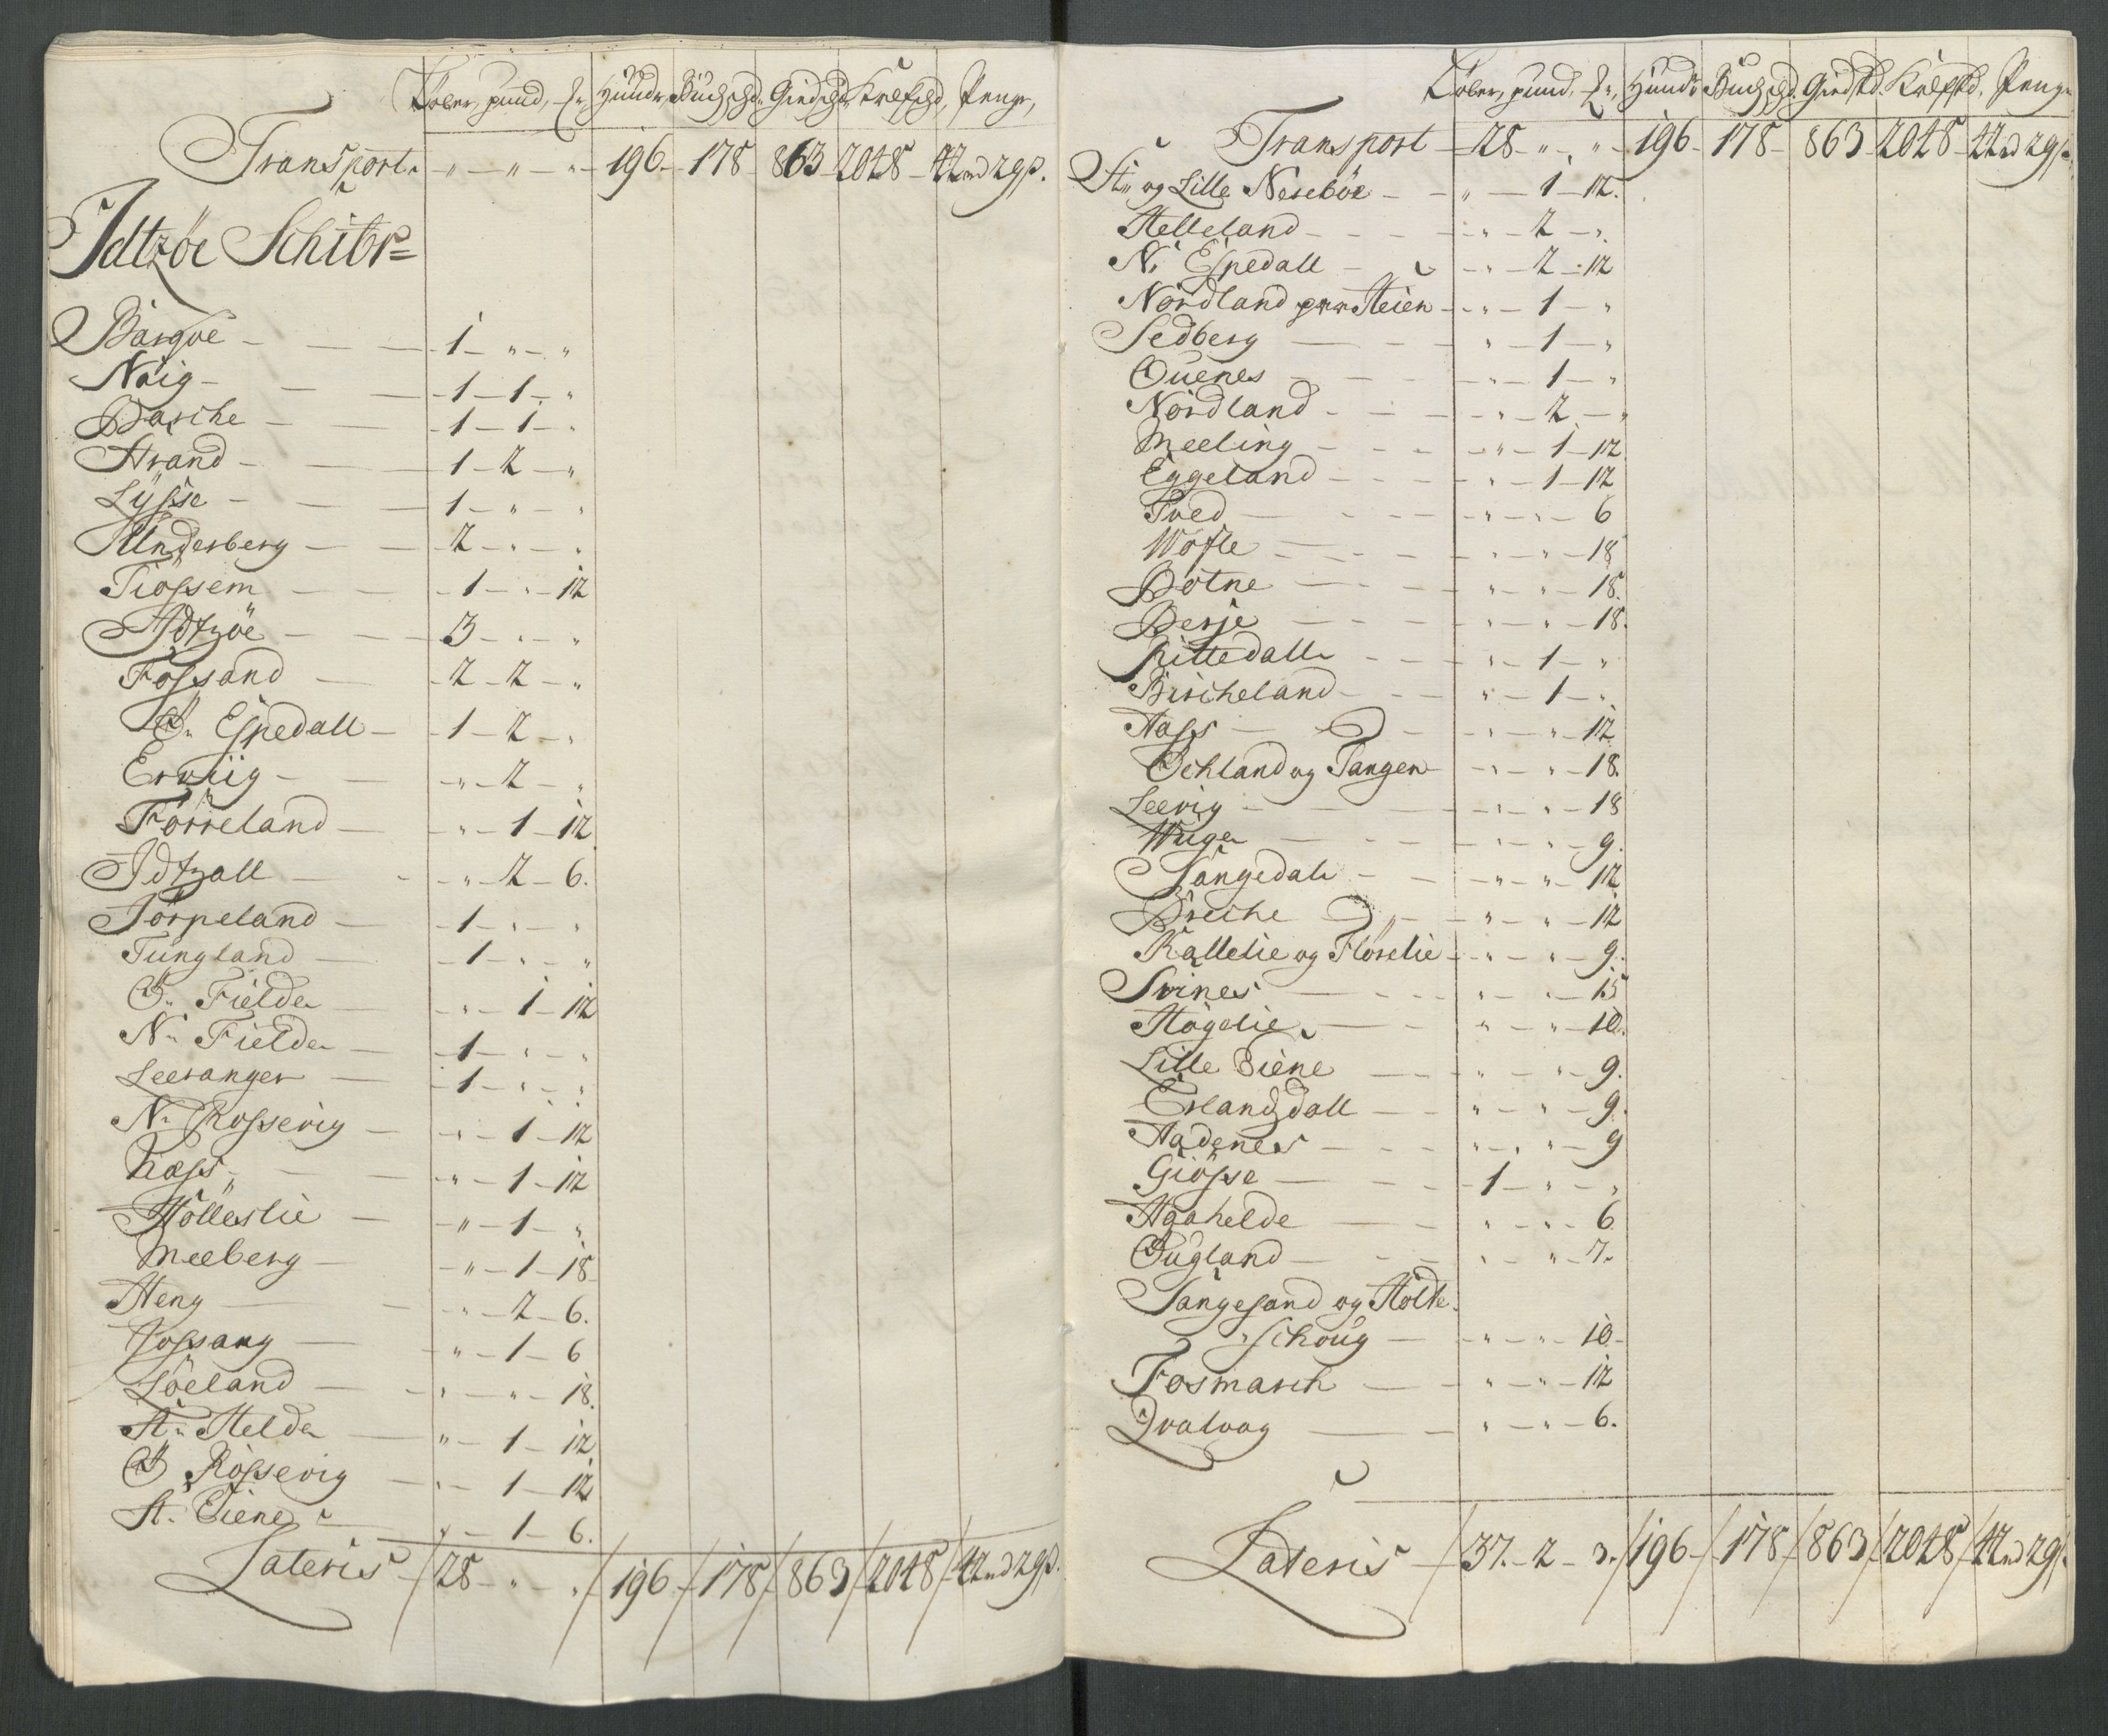 Løber, pund, Hunde, Buchschd, Giedschd, Kalfschd, Penge,
Transport „ — „ — „ 196 — 178 863 — 2048 — 42rd 29ß.
Idtzöe Schibr=
Bargoe — 1 — „ — „
Naig — 1 — 1 — „
Barche — 1 — 1 — „
Strand — 1 — 2 — „
Lÿsse — 1 — „ — „
Underberg — 2 — „ — „
Tiössem — 1 — „ — 12
Idtzöe — 3 — „ — „
Fossand — 2 — 2 — „
Ö. Espedall — 1 — 2 — „
Erviig — „ — 2 — „
Förreland — „ — 1 — 12
Idtzall — „ — 2 — 6.
Jörpeland — 1 — „ — „
Tungland — 1 — „ — „
Ö. Fielde — „ — 1 — 12
N. Fielde — 1 — „ — „
Leeranger — 1 — „ — „
N. Rossevig — „ — 1 — 12
Næss — „ — 1 — 12
Hölleslie — „ — 1 — „
Meeberg — „ — 1 — 18
Heng — „ — 2 — 6.
Jossang — „ — 1 — 6
Löeland — „ — „ — 18.
St. Helde — „ — 1 — 12
Ö Rössevig — „ — 1 — 12
St. Tiene — „ — 1 — 6.
Lateris — 28 — „ — „ 196 — 178 — 863 2048 — 42rd 29ß.
Løber, pund, Hunde Buchschd. Giedschd. Kalfschd. Penge
Transport — 28 — „ — „ — 196 — 178 — 863 — 2048 — 42rd 29ß.
St. og Lille Neseböe — „ — 1 — 12.
Helleland — „ — 2 — „
N. Espedall — „ — 2 — 12
Nordland Heien — „ — 1 — „
Sedberg — „ — 1 — „
Quenes — „ — 1 — „
Nordland — „ — 2 — „
Meeling — „ — 1 — 12
Eggeland — „ — 1 — 12
Tved — „ — „ — 6
Wofle — „ — „ — 18
Botne — „ — „ — 18.
Berje — „ — „ — 18.
Rittedall — „ — 1 — „
Bircheland — „ — 1 — „
Aass — „ — „ — 12
Öchland og Tangen — „ — „ — 18.
Leevig — „ — „ — 18
Wiige — „ — „ — 9.
Sangedale — „ — „ — 12
Breche — „ — „ — 12
Kallelie og Florelie — „ — „ — 9.
Svines — „ — „ — 15
Högelie — „ — „ — 10.
Lille Tiene — „ — „ — 9.
Erlandzdall — „ — „ — 9.
Aadenes — „ — „ — 9
Giösse — 1 — „ — „
Aaahelde — „ — „ — 6
Öugland — „ — „ — 7.
Sangesand og Holte-
schoug — „ — „ — 10
Fosmarch — „ — „ — 12
Qvalvag — „ — „ — 6.
Lateris — 37 — 2 — 3. 196 — 178 — 863 2048 — 42rd 29ß.